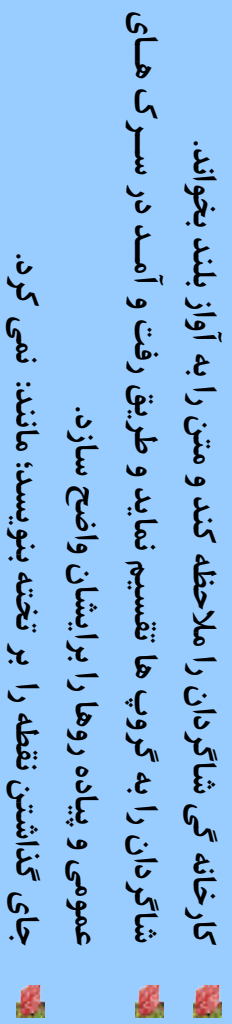 کار خانه گی شاگردان را ملاحظه کند و متن را به آواز بلند بخواند.
شاگردان را به گروپ ها تقسیم نماید و طریق رفت و آمـد در سـرک هـای
عمومی و پیاده روها را برایشان واضح سازد.
جای گذاشتن نقطه را بر تخته بنویسد؛ مانند: نمی کرد.